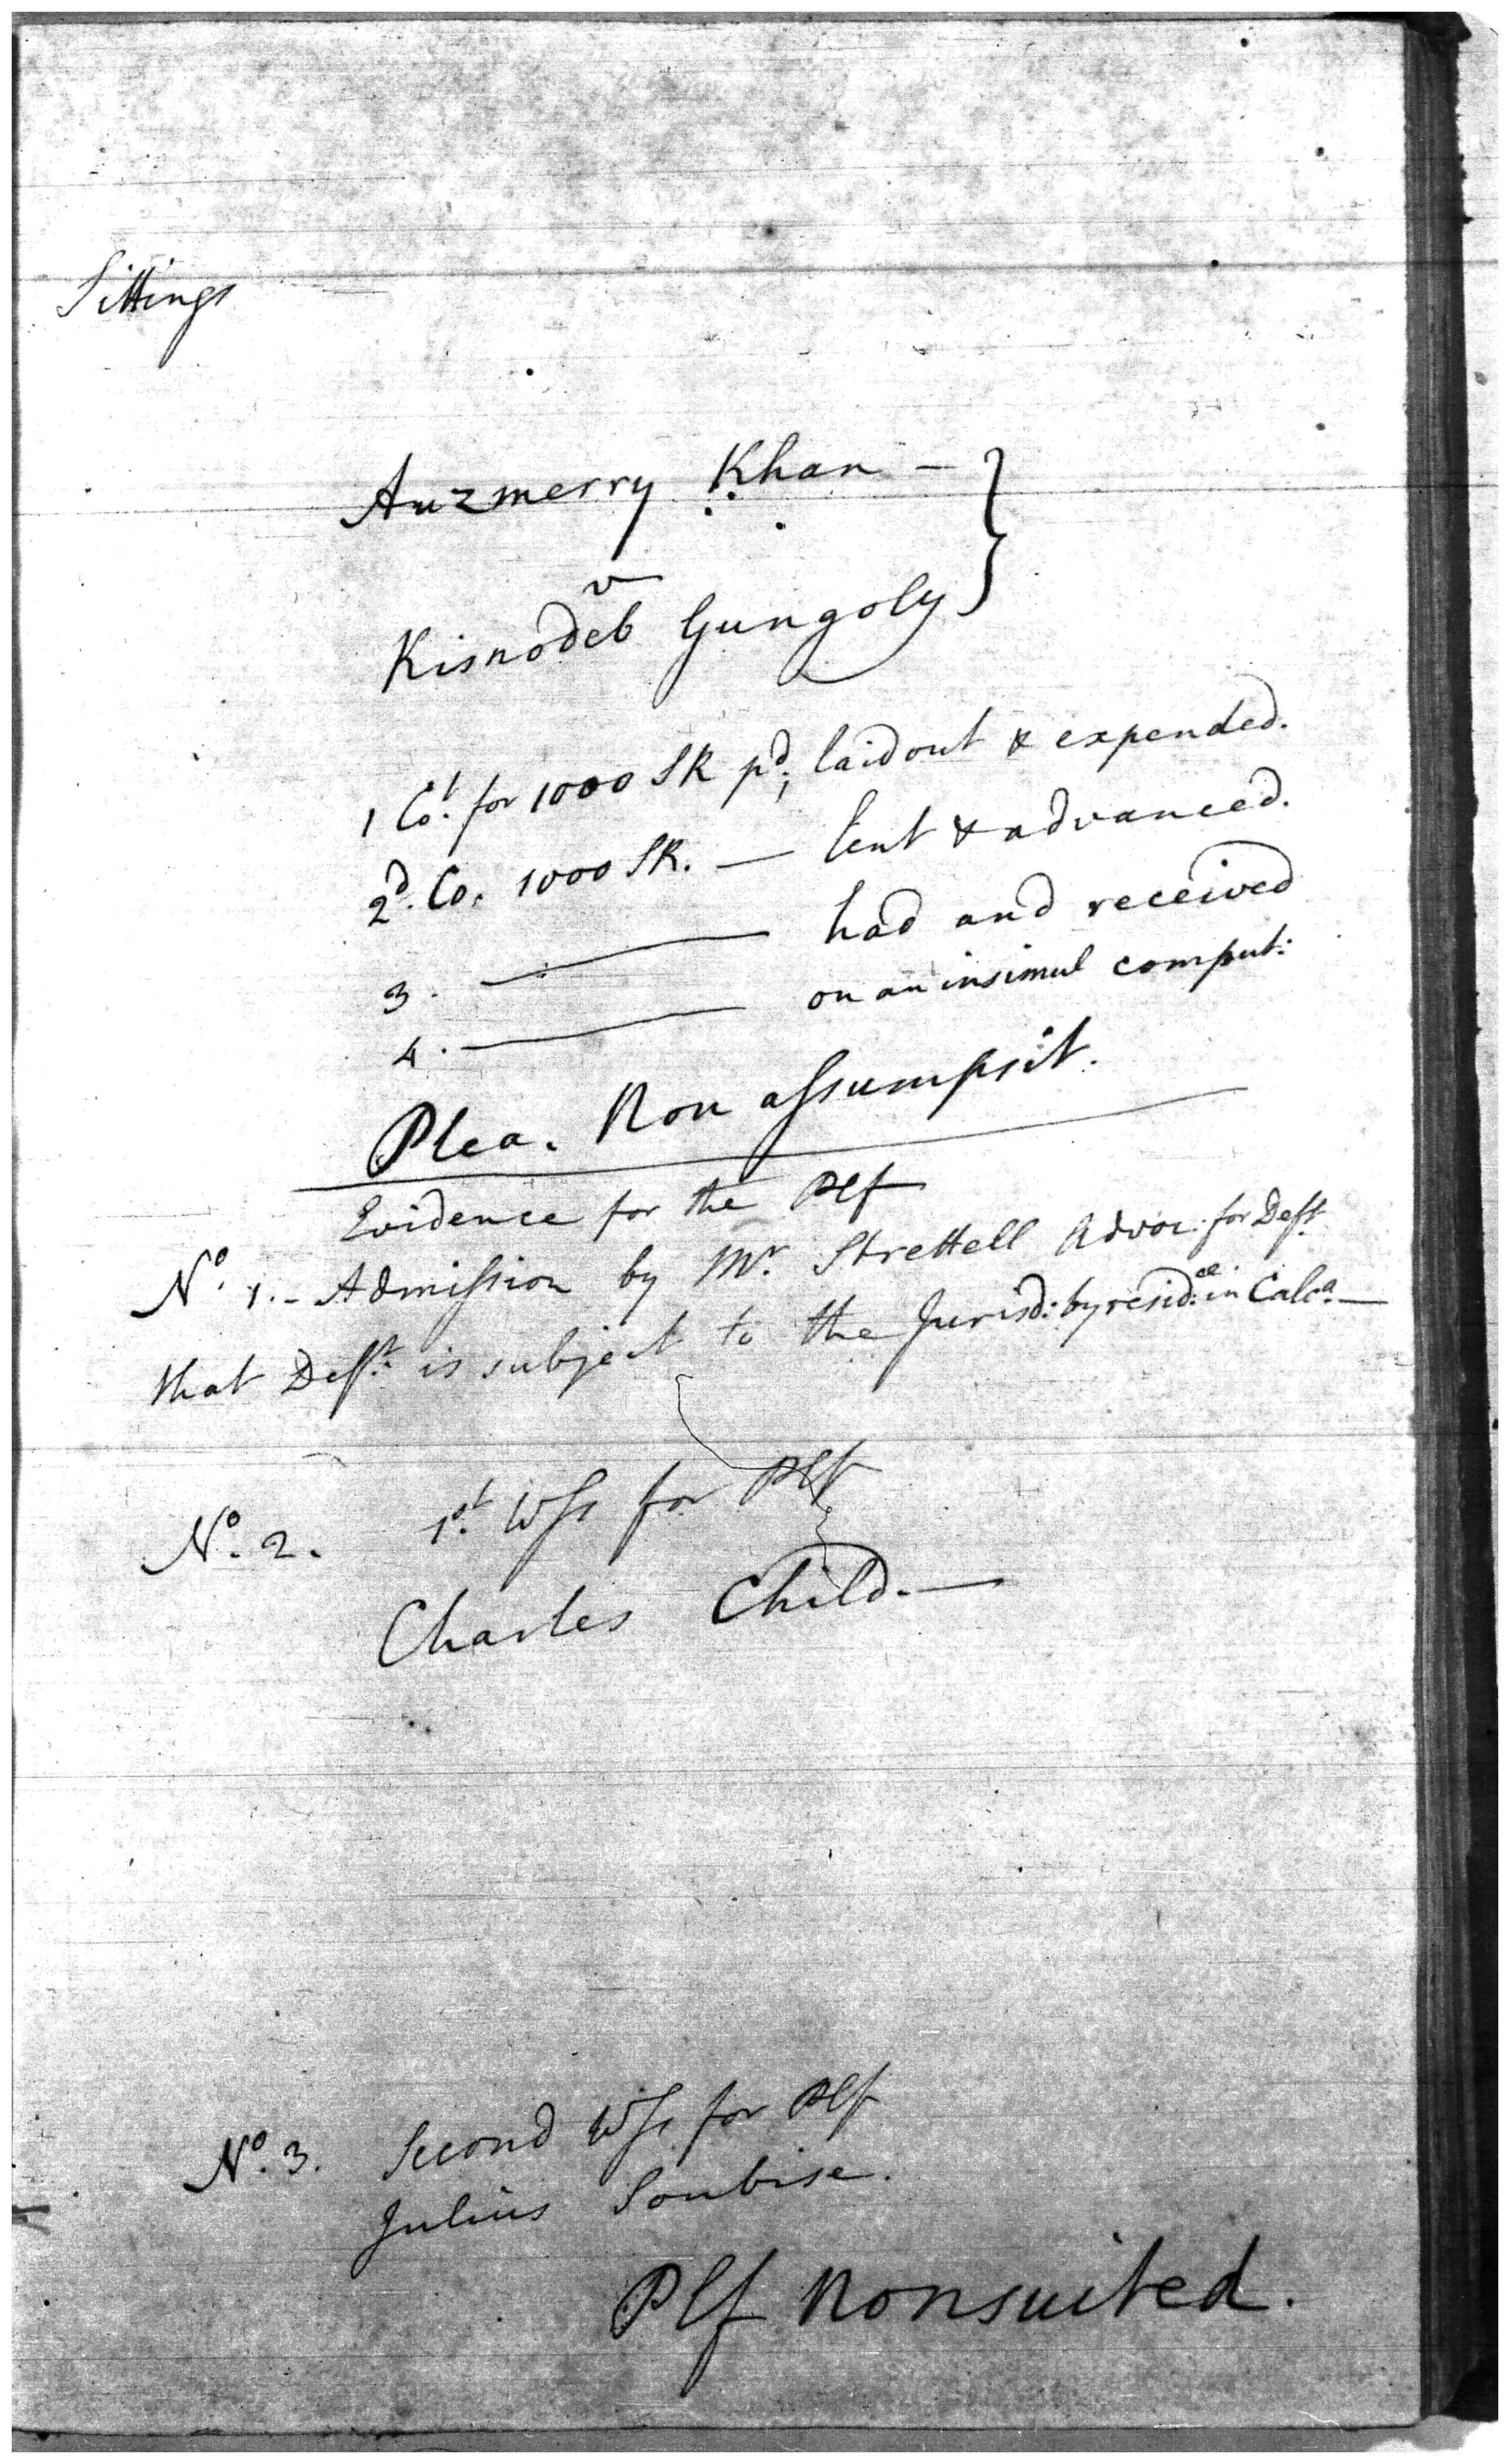 Sittings
Auzmerry Khan —
v
Kisnodeb Gungoly
1 Co.t for 1000 SR pd, laid out & expended.
2d. Co. 1000 SR. — lent & advanced.
3. — had and received
4. — on an insimul comput:
Plea. Non assumpsit.
Evidence for the Plf
No. 1. - Admission by Mr. Strettell Advoc. for Deft
that Deft. is subject to the Jurisd: by resid:ce in Calca. —
No. 2. 1st. Wss for Plf
Charles Child. —
No. 3. Second Wss for Plf
Julius Soubise.
Plf Nonsuited.